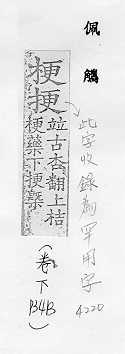 佩觿
此字收錄為罕用字
4220
梗挭
竝古杏翻上桔
梗藥下挭槩
(卷下
B4B)